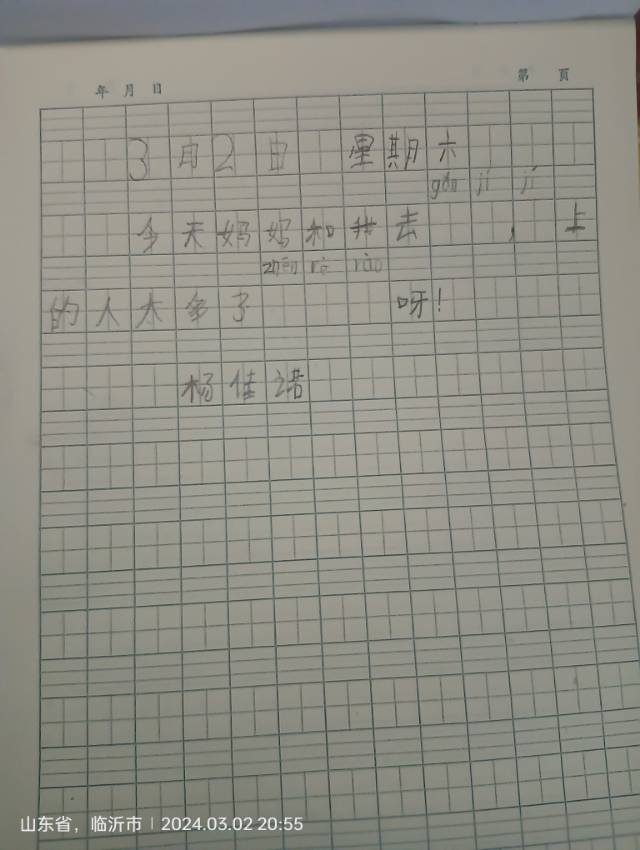 年 月 日 第 页
3月2日 星期六
gǎn jí jí
今天妈妈和我去 ，上
zhēn rè
的人太多了 呀！
杨佳诺
山东省，临沂市 2024.03.02 20:55